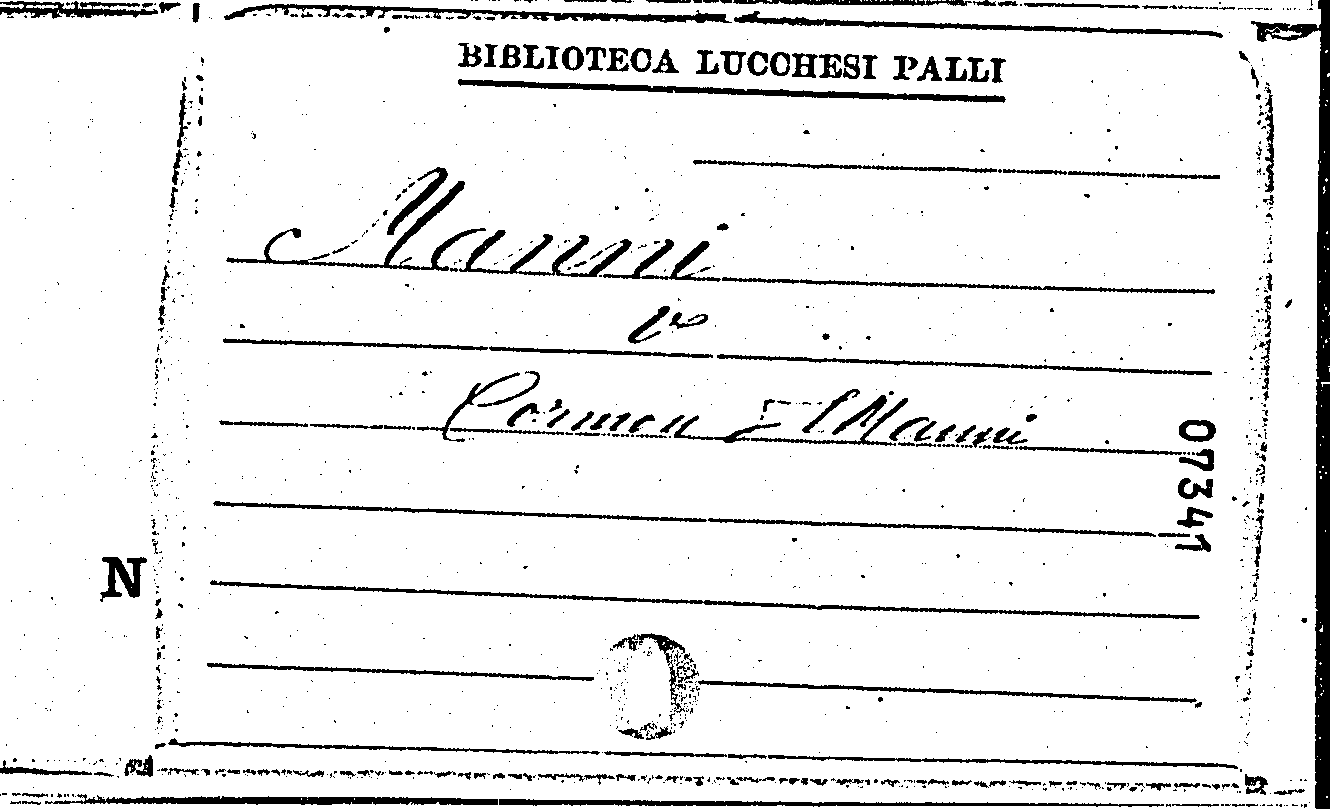 BIBLIOTECA LUCCHESI PALLI
Manni
v
Cormon E Manni
07341
N